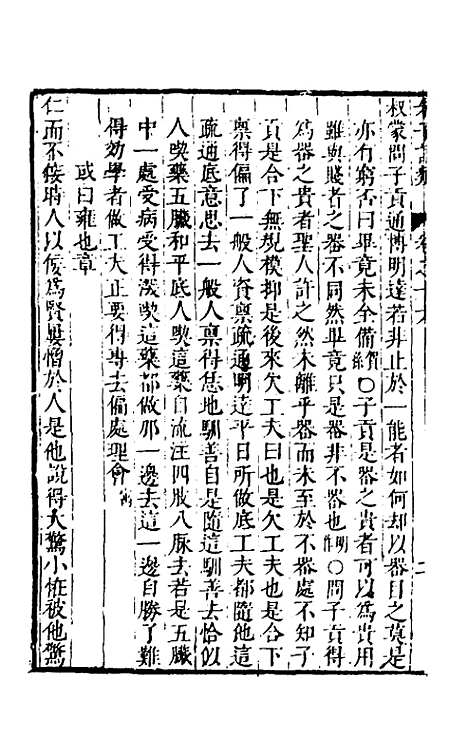 叔蒙問子貢通博明達若非止於一能者如何却以器目之莫是
亦有窮否曰畢竟未全備賀孫〇子貢是器之貴者可以為貴用
雖與賤者之器不同然畢竟只是器非不器也明作〇問子貢得
為器之貴者聖人許之然未離乎器而未至於不器處不知子
貢是合下無規模抑是後來欠工夫曰也是欠工夫也是合下
禀得偏了一般人資禀疏通明達平日所做底工夫都隨他這
疏通底意思去一般人禀得恁地馴善自是隨這馴善去恰似
人喫藥五臟和平底人喫這藥自流注四肢八脉去若是五臟
中一處受病受得深喫這藥都做那一邊去這一邊自勝了難
得効學者做工夫正要得專去偏處理會㝢
或曰雍也章
仁而不佞時人以佞為賢屢憎於人是他說得大驚小怪被他驚